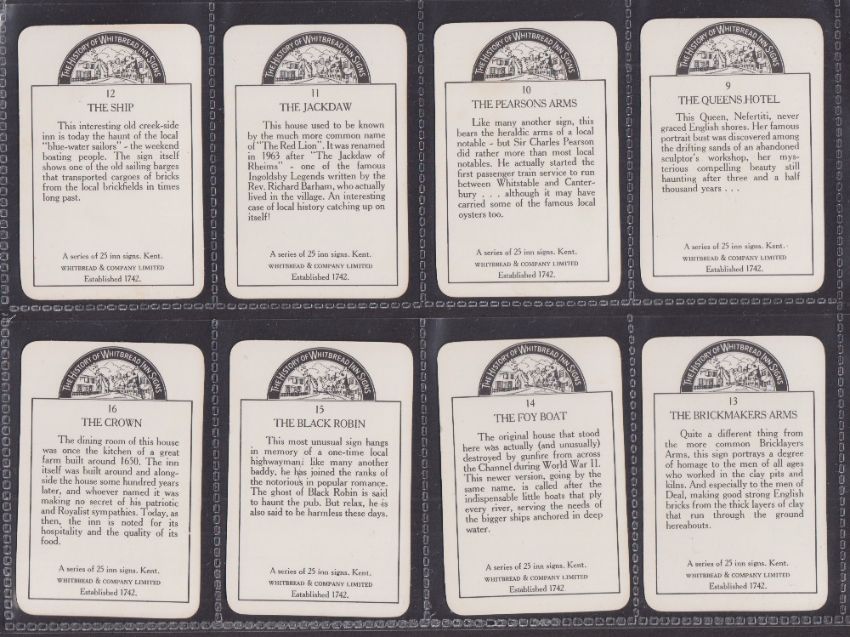 THE HISTORY OF WHITBREAD INN SIGNS
12
THE SHIP
This interesting old creek-side
inn is today the haunt of the local
"blue-water sailors" - the weekend
boating people. The sign itself
shows one of the old sailing barges
that transported cargoes of bricks
from the local brickfields in times
long past.
A series of 25 inn signs. Kent.
WHITBREAD & COMPANY LIMITED
Established 1742.
THE HISTORY OF WHITBREAD INN SIGNS
11
THE JACKDAW
This house used to be known
by the much more common name
of "The Red Lion". It was renamed
in 1963 after "The Jackdaw of
Rheims" - one of the famous
Ingoldsby Legends written by the
Rev. Richard Barham, who actually
lived in the village. An interesting
case of local history catching up on
itself!
A series of 25 inn signs. Kent.
WHITBREAD & COMPANY LIMITED
Established 1742.
THE HISTORY OF WHITBREAD INN SIGNS
10
THE PEARSONS ARMS
Like many another sign, this
bears the heraldic arms of a local
notable - but Sir Charles Pearson
did rather more than most local
notables. He actually started the
first passenger train service to run
between Whitstable and Canter-
bury . . . . although it may have
carried some of the famous local
oysters too.
A series of 25 inn signs. Kent.
WHITBREAD & COMPANY LIMITED
Established 1742.
THE HISTORY OF WHITBREAD INN SIGNS
9
THE QUEENS HOTEL
This Queen, Nefertiti, never
graced English shores. Her famous
portrait bust was discovered among
the drifting sands of an abandoned
sculptor's workshop, her mys-
terious compelling beauty still
haunting after three and a half
thousand years . . .
A series of 25 inn signs. Kent.
WHITBREAD & COMPANY LIMITED
Established 1742.
THE HISTORY OF WHITBREAD INN SIGNS
16
THE CROWN
The dining room of this house
was once the kitchen of a great
farm built around 1650. The inn
itself was built around and along-
side the house some hundred years
later, and whoever named it was
making no secret of his patriotic
and Royalist sympathies. Today, as
then, the inn is noted for its
hospitality and the quality of its
food.
A series of 25 inn signs. Kent.
WHITBREAD & COMPANY LIMITED
Established 1742.
THE HISTORY OF WHITBREAD INN SIGNS
15
THE BLACK ROBIN
This most unusual sign hangs
in memory of a one-time local
highwayman: like many another
baddy, he has joined the ranks of
the notorious in popular romance.
The ghost of Black Robin is said
to haunt the pub. But relax, he is
also said to be harmless these days.
A series of 25 inn signs. Kent.
WHITBREAD & COMPANY LIMITED
Established 1742.
THE HISTORY OF WHITBREAD INN SIGNS
14
THE FOY BOAT
The original house that stood
here was actually (and unusually)
destroyed by gunfire from across
the Channel during World War II.
This newer version, going by the
same name, is called after the
indispensable little boats that ply
every river, serving the needs of
the bigger ships anchored in deep
water.
A series of 25 inn signs. Kent.
WHITBREAD & COMPANY LIMITED
Established 1742
THE HISTORY OF WHITBREAD INN SIGNS
13
THE BRICKMAKERS ARMS
Quite a different thing from
the more common Bricklayers
Arms, this sign portrays a degree
of homage to the men of all ages
who worked in the clay pits and
kilns. And especially to the men of
Deal, making good strong English
bricks from the thick layers of clay
that run through the ground
hereabouts.
A series of 25 inn signs. Kent.
WHITBREAD & COMPANY LIMITED
Established 1742.